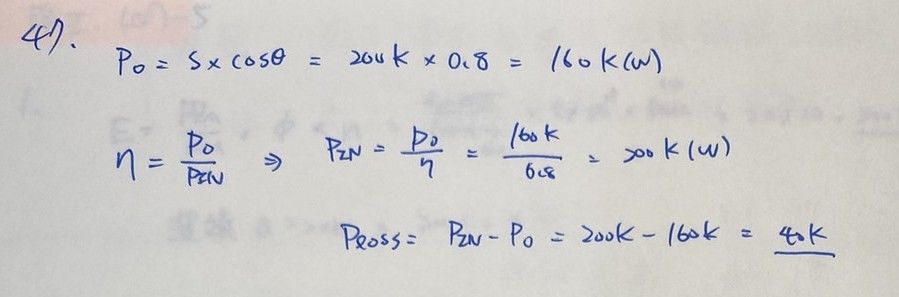 47.
P₀ = S × cosθ = 200k × 0.8 = 160k(W)
η = P₀/PIN ⇒ PIN = P₀/η = 160k/0.8 = 200k(W)
PLOSS = PIN - P₀ = 200k - 160k = 40k